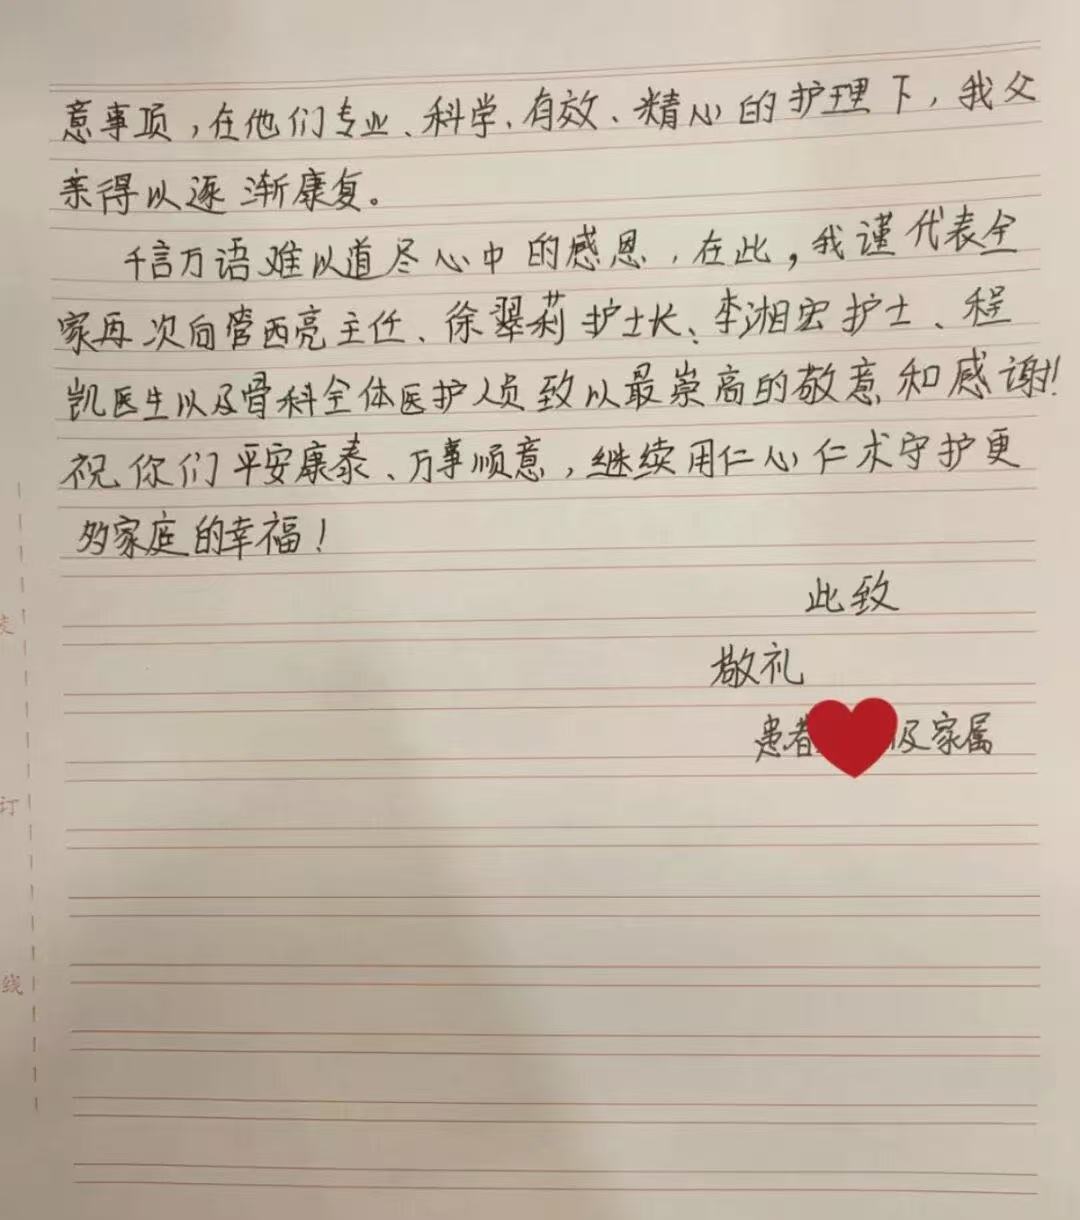 意事项，在他们专业、科学、有效、精心的护理下，我父
亲得以逐渐康复。
千言万语难以道尽心中的感恩，在此，我谨代表全
家再次向管西亮主任、徐翠莉护士长、李湘宏护士、程
凯医生以及骨科全体医护人员致以最崇高的敬意和感谢！
祝你们平安康泰、万事顺意，继续用仁心仁术守护更
多家庭的幸福！
此致
敬礼
患者 及家属
订
线